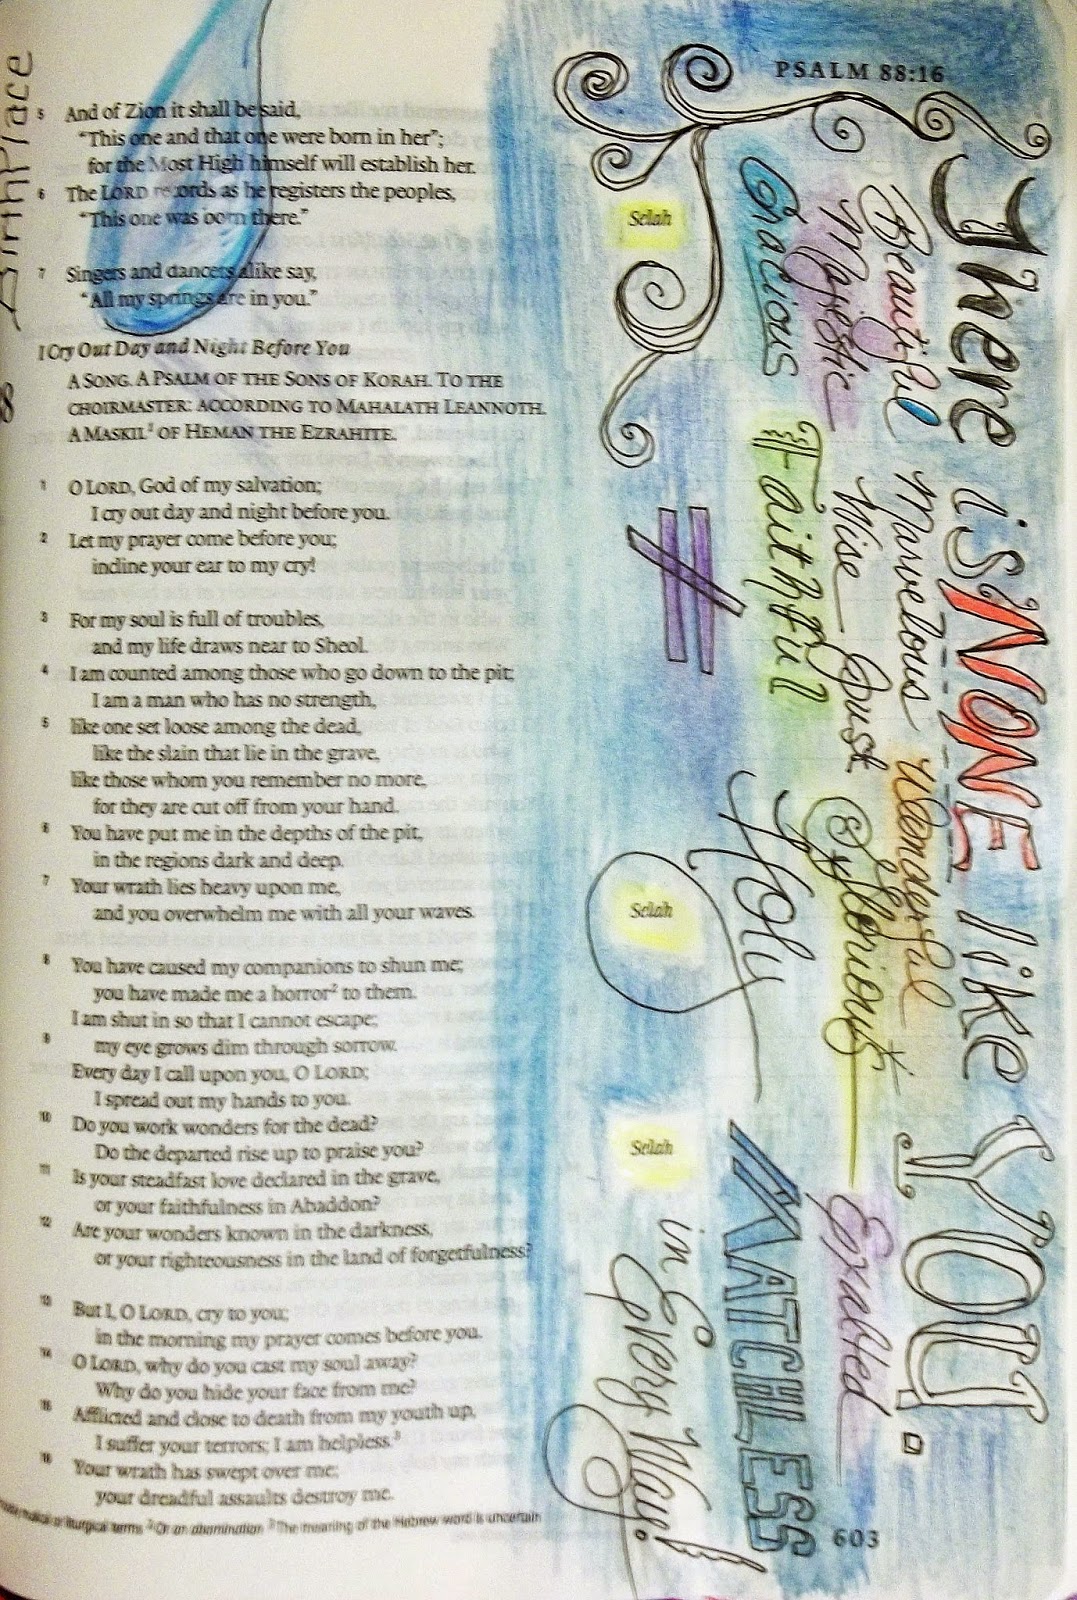 PSALM 88:16
BirthPlace
5 And of Zion it shall be said,
"This one and that one were born in her";
for the Most High himself will establish her.
6 The LORD records as he registers the peoples,
"This one was born there." Selah
7 Singers and dancers alike say,
"All my springs are in you."
I Cry Out Day and Night Before You
88 A SONG. A PSALM OF THE SONS OF KORAH. TO THE
CHOIRMASTER: ACCORDING TO MAHALATH LEANNOTH.
A MASKIL1 OF HEMAN THE EZRAHITE.
1 O LORD, God of my salvation;
I cry out day and night before you.
2 Let my prayer come before you;
incline your ear to my cry!
3 For my soul is full of troubles,
and my life draws near to Sheol.
4 I am counted among those who go down to the pit;
I am a man who has no strength,
5 like one set loose among the dead,
like the slain that lie in the grave,
like those whom you remember no more,
for they are cut off from your hand.
6 You have put me in the depths of the pit,
in the regions dark and deep.
7 Your wrath lies heavy upon me,
and you overwhelm me with all your waves. Selah
8 You have caused my companions to shun me;
you have made me a horror2 to them.
I am shut in so that I cannot escape;
9 my eye grows dim through sorrow.
Every day I call upon you, O LORD;
I spread out my hands to you.
10 Do you work wonders for the dead?
Do the departed rise up to praise you? Selah
11 Is your steadfast love declared in the grave,
or your faithfulness in Abaddon?
12 Are your wonders known in the darkness,
or your righteousness in the land of forgetfulness?
13 But I, O LORD, cry to you;
in the morning my prayer comes before you.
14 O LORD, why do you cast my soul away?
Why do you hide your face from me?
15 Afflicted and close to death from my youth up,
I suffer your terrors; I am helpless.3
16 Your wrath has swept over me;
your dreadful assaults destroy me.
musical or liturgical terms 2 Or an abomination 3 The meaning of the Hebrew word is uncertain
603
There is NONE like YOU.
Beautiful Marvelous Wonderful
Majestic Wise Just Glorious Exalted
Gracious Faithful Holy MATCHLESS
≠ in Every Way!